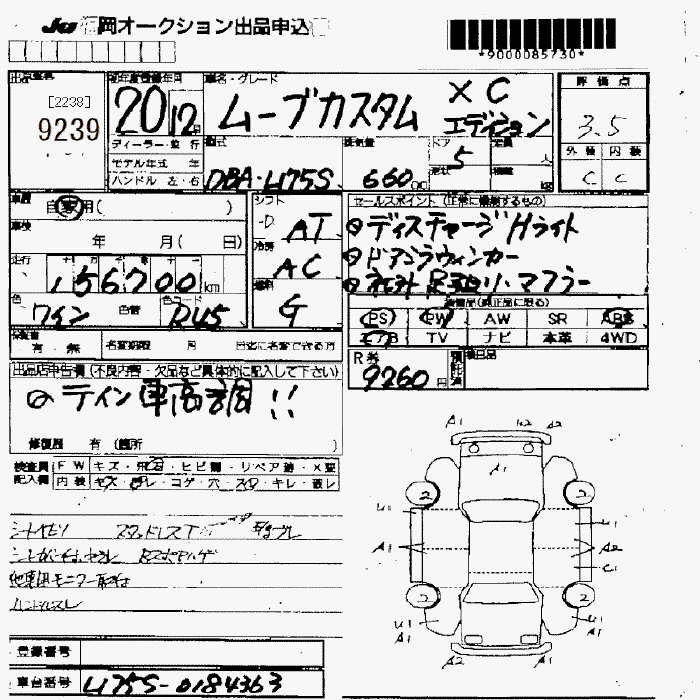 JU福岡オークション出品申込
*9000085730*
出品番号
[2238]
9239
初年度登録年月
20 12月
ディーラー・並 行
モデル年式 年
ハンドル 左・右
車名・グレード
ムーブカスタム X C
エディション
型式
DBA-L175S
排気量
660cc
ドア
5
形状
定員
人
積載
kg
評価点
3.5
外装 内装
C C
車歴
自家用( )
車検
年 月( 日)
走行
十 万 千 百 十
156700km
色
ワイン
色替
色コード
R45
シフト
-D AT
冷房
AC
燃料
G
セールスポイント (正常に機能するもの)
⊙ディスチャージHライト
⊙ドアミラウィンカー
装備品(純正品に限る)
PS PW AW SR ABS
エアB TV ナビ 本革 4WD
保証書
有・無
名変期限 月 日迄に名変できる方
R券
9260円
預託済
出品店申告欄 (不良内容・欠品など具体的に記入して下さい)
⊙テイン車高調!!
修復歴 有 (箇所 )
検査員
記入欄
FW キズ・飛石・ヒビ割・リペア跡・X要
内装 キズ・汚レ・コゲ・穴・スレ・キレ・破レ
スタッドレス
他車用モニター取付
ハンドルスレ
A1 U2 A2
A1
2 2
U1 U1
A1 A2
C1
2 2
U1 U1
A1 A1
A2 A1
登録番号
車台番号 L175S-0184363